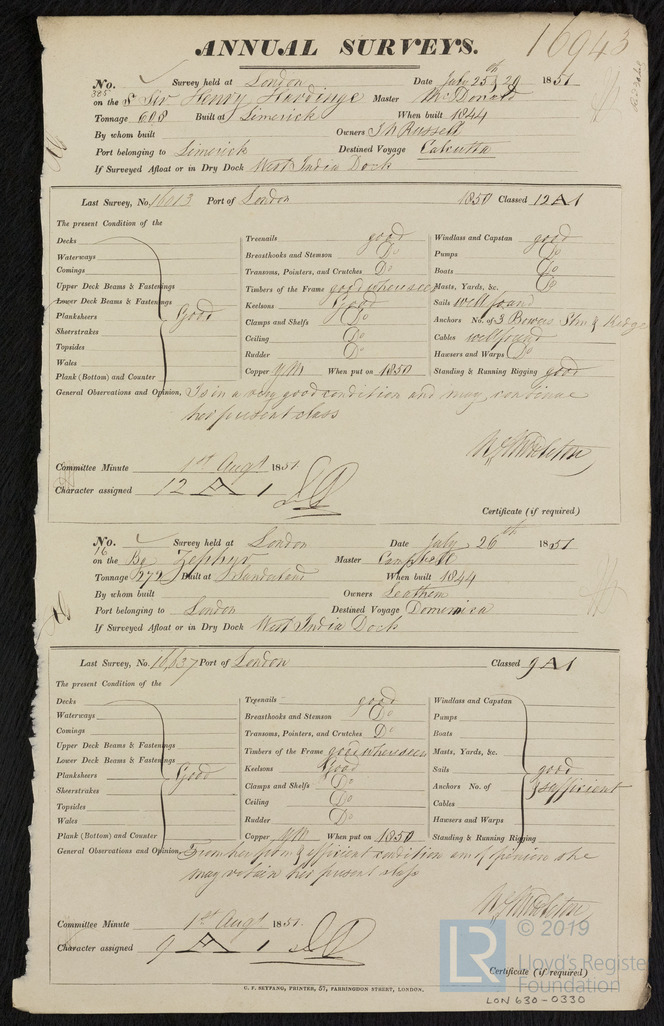 ANNUAL SURVEYS. 16943
No. 385 Survey held at London Date July 25th & 29 1851
on the S Sir Henry Hardinge Master McDonald
Tonnage 608 Built at Limerick When built 1844
By whom built Owners J N Russell
Port belonging to Limerick Destined Voyage Calcutta
If Surveyed Afloat or in Dry Dock West India Dock
Last Survey, No. 16013 Port of London 1850 Classed 12 A 1
The present Condition of the
Decks Treenails good Windlass and Capstan good
Waterways Breasthooks and Stemson Do Pumps Do
Comings Transoms, Pointers, and Crutches Do Boats Do
Upper Deck Beams & Fastenings Timbers of the Frame good when seen Masts, Yards, &c. Do
Lower Deck Beams & Fastenings Keelsons Good Sails well found
Planksheers Good Clamps and Shelfs Do Anchors No. of 3 Bowers Stm & Kedge
Sheerstrakes Ceiling Do Cables well found
Topsides Rudder Do Hawsers and Warps Do
Wales Copper YM When put on 1850 Standing & Running Rigging good
Plank (Bottom) and Counter
General Observations and Opinion, Is in a very good condition and may continue
her present class
Committee Minute 1st Augt 1851
Character assigned 12 A 1
Certificate (if required)
No. 16 Survey held at London Date July 26th 1851
on the Bg Zephyr Master Campbell
Tonnage 272 Built at Sunderland When built 1844
By whom built Owners Leathem
Port belonging to London Destined Voyage Domenica
If Surveyed Afloat or in Dry Dock West India Dock
Last Survey, No. 16637 Port of London Classed 9 A 1
The present Condition of the
Decks Treenails good Windlass and Capstan
Waterways Breasthooks and Stemson Do Pumps
Comings Transoms, Pointers, and Crutches Do Boats
Upper Deck Beams & Fastenings Timbers of the Frame good when seen Masts, Yards, &c.
Lower Deck Beams & Fastenings Keelsons Good Sails good
Planksheers Good Clamps and Shelfs Do Anchors No. of 3 sufficient
Sheerstrakes Ceiling Do Cables
Topsides Rudder Do Hawsers and Warps
Wales Copper YM When put on 1850 Standing & Running Rigging
Plank (Bottom) and Counter
General Observations and Opinion, From her good & efficient condition am of opinion she
may retain her present class
Committee Minute 1st Augt 1851.
Character assigned 9 A 1
Certificate (if required)
C. F. SEYFANG, PRINTER, 57, FARRINGDON STREET, LONDON.
LR © 2019
Lloyd's Register
Foundation
LON 630-0330